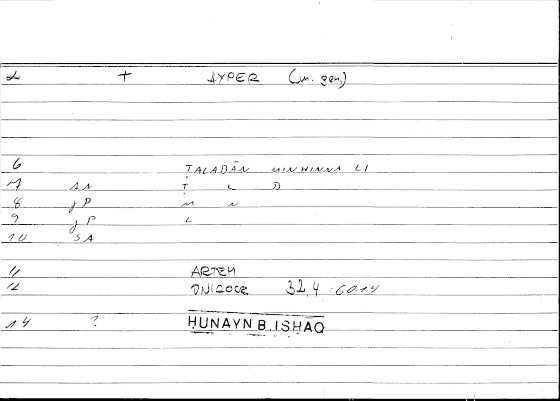 2 + AYPER (m. gen.)
6 ṬALABĀN MINHINNA LI
7 SA Ṭ L B
8 gP M N
9 gP L
10 SA
11 ARTEM
12 ONIROCR 32,4 : 60.14
14 ? HUNAYN B. ISHAQ